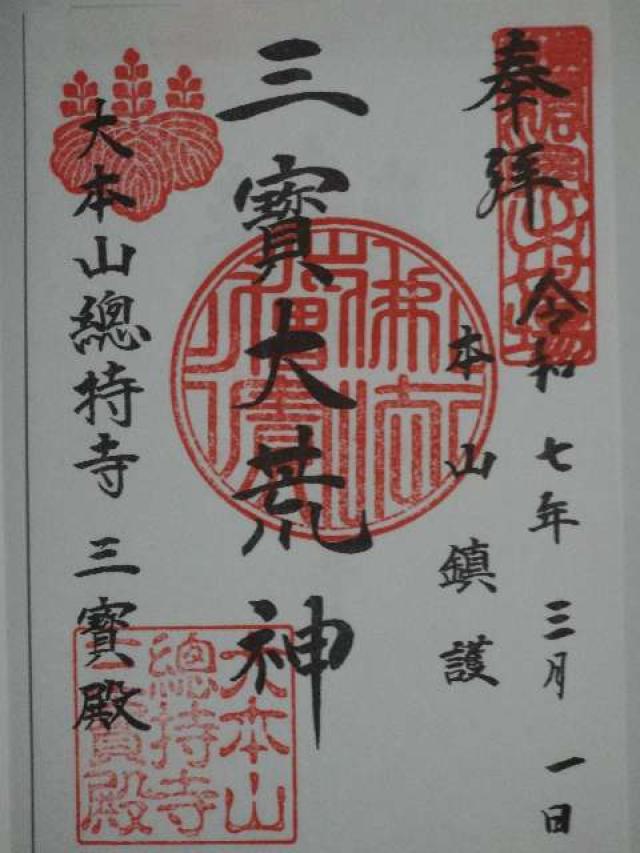 奉拜 令和七年三月一日
本山鎮護
三寶大荒神
大本山總持寺 三寶殿
佛法僧寶
大本山
總持寺
三寶殿